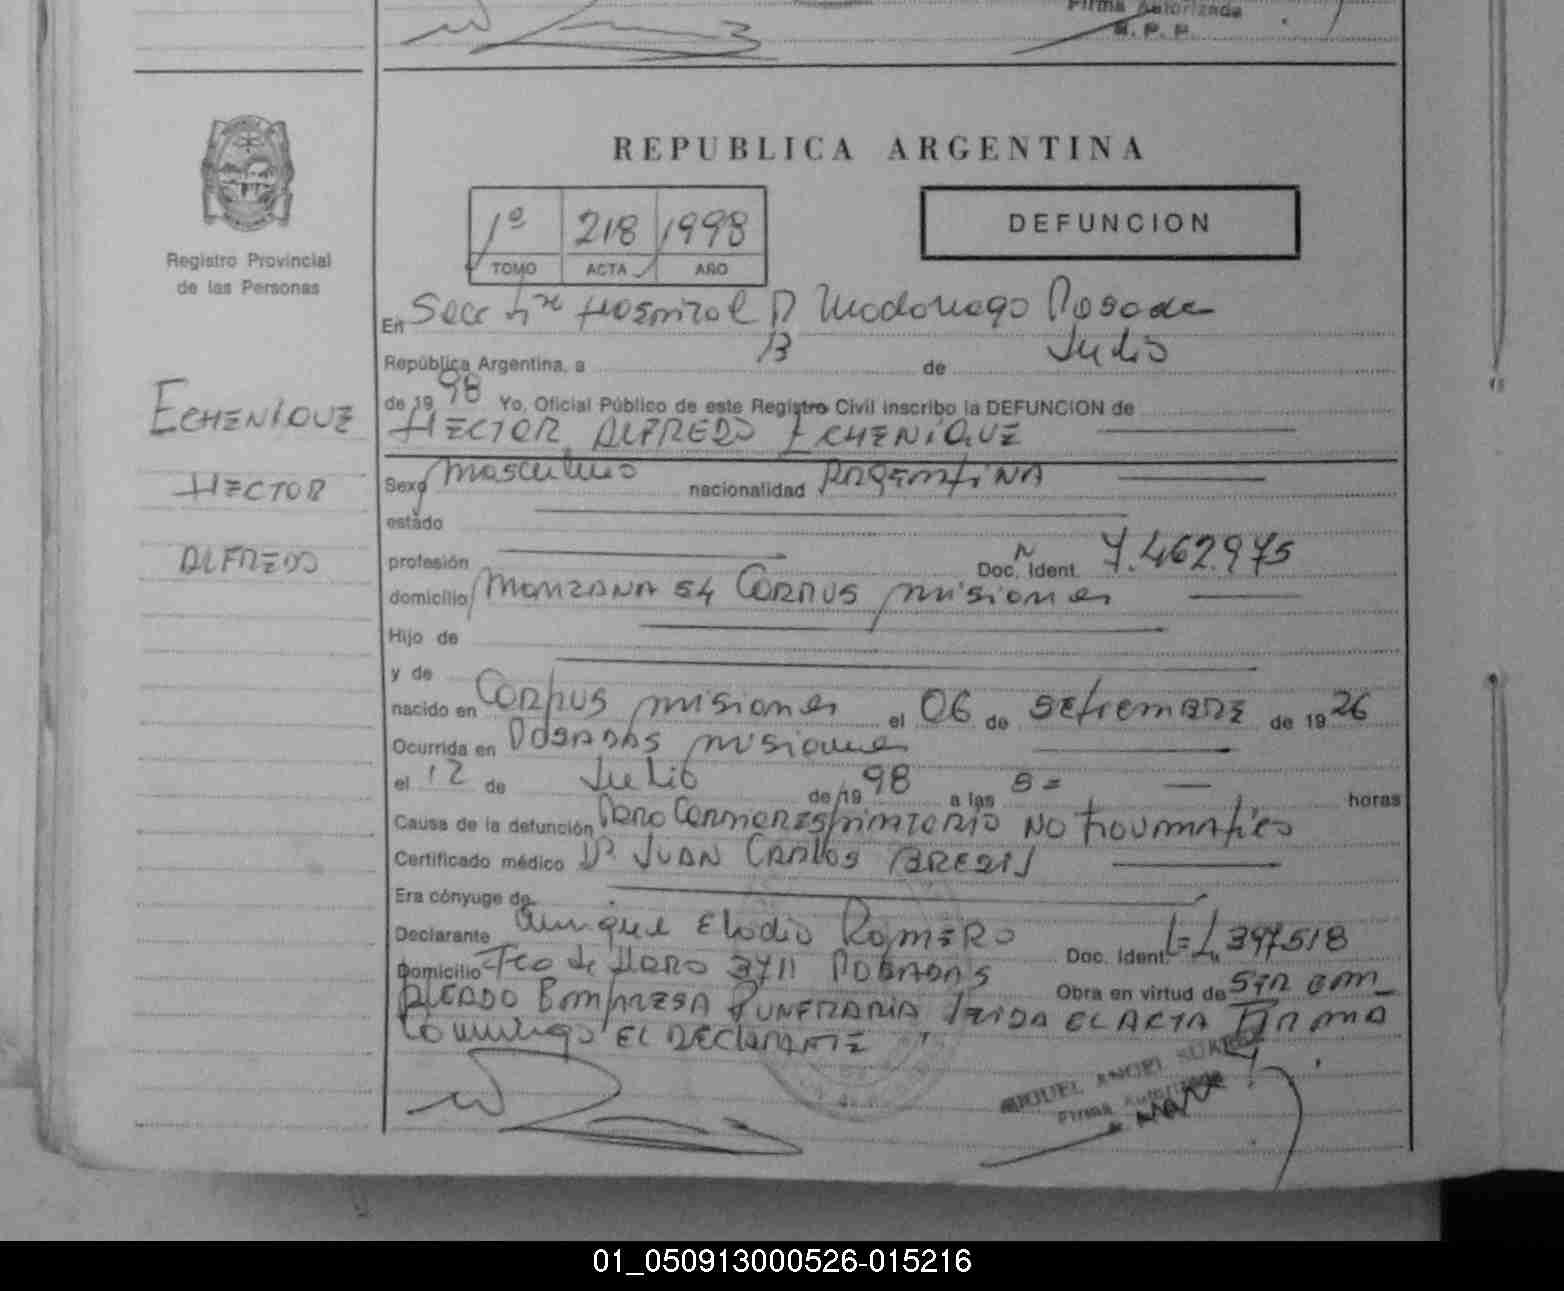 Firma Autorizada
R. P. P.
REPUBLICA ARGENTINA
1º 218 1998
TOMO ACTA AÑO
DEFUNCION
Registro Provincial
de las Personas
En Secc Hospital R Madariaga Posadas
República Argentina, a 13 de Julio
de 19 98 Yo, Oficial Público de este Registro Civil inscribo la DEFUNCION de
HECTOR ALFREDO ECHENIQUE
ECHENIQUE
HECTOR
ALFREDO
Sexo masculino nacionalidad ARgentiNA
estado
profesión Doc. Ident. N 7.462.975
domicilio MANZANA 54 CORPUS misiones
Hijo de
y de
nacido en Corpus misiones el 06 de setiemBRE de 19 26
Ocurrida en POSADAS misiones
el 12 de Julio de 19 98 a las 8= horas
Causa de la defunción PARO CARDIORESPIRATORIO NO traumatico
Certificado médico Dr JUAN CARLOS
Era cónyuge de
Declarante Enrique Elodio ROMERO Doc. Ident. L=1.397.518
Domicilio Fco de Haro 3711 POSADAS Obra en virtud de SER em_
PLEADO EMPRESA FUNERARIA LEIDA EL ACTA FIRMA
Conmigo EL DECLARANTE
MIGUEL ANGEL
Firma Autorizada
01_050913000526-015216